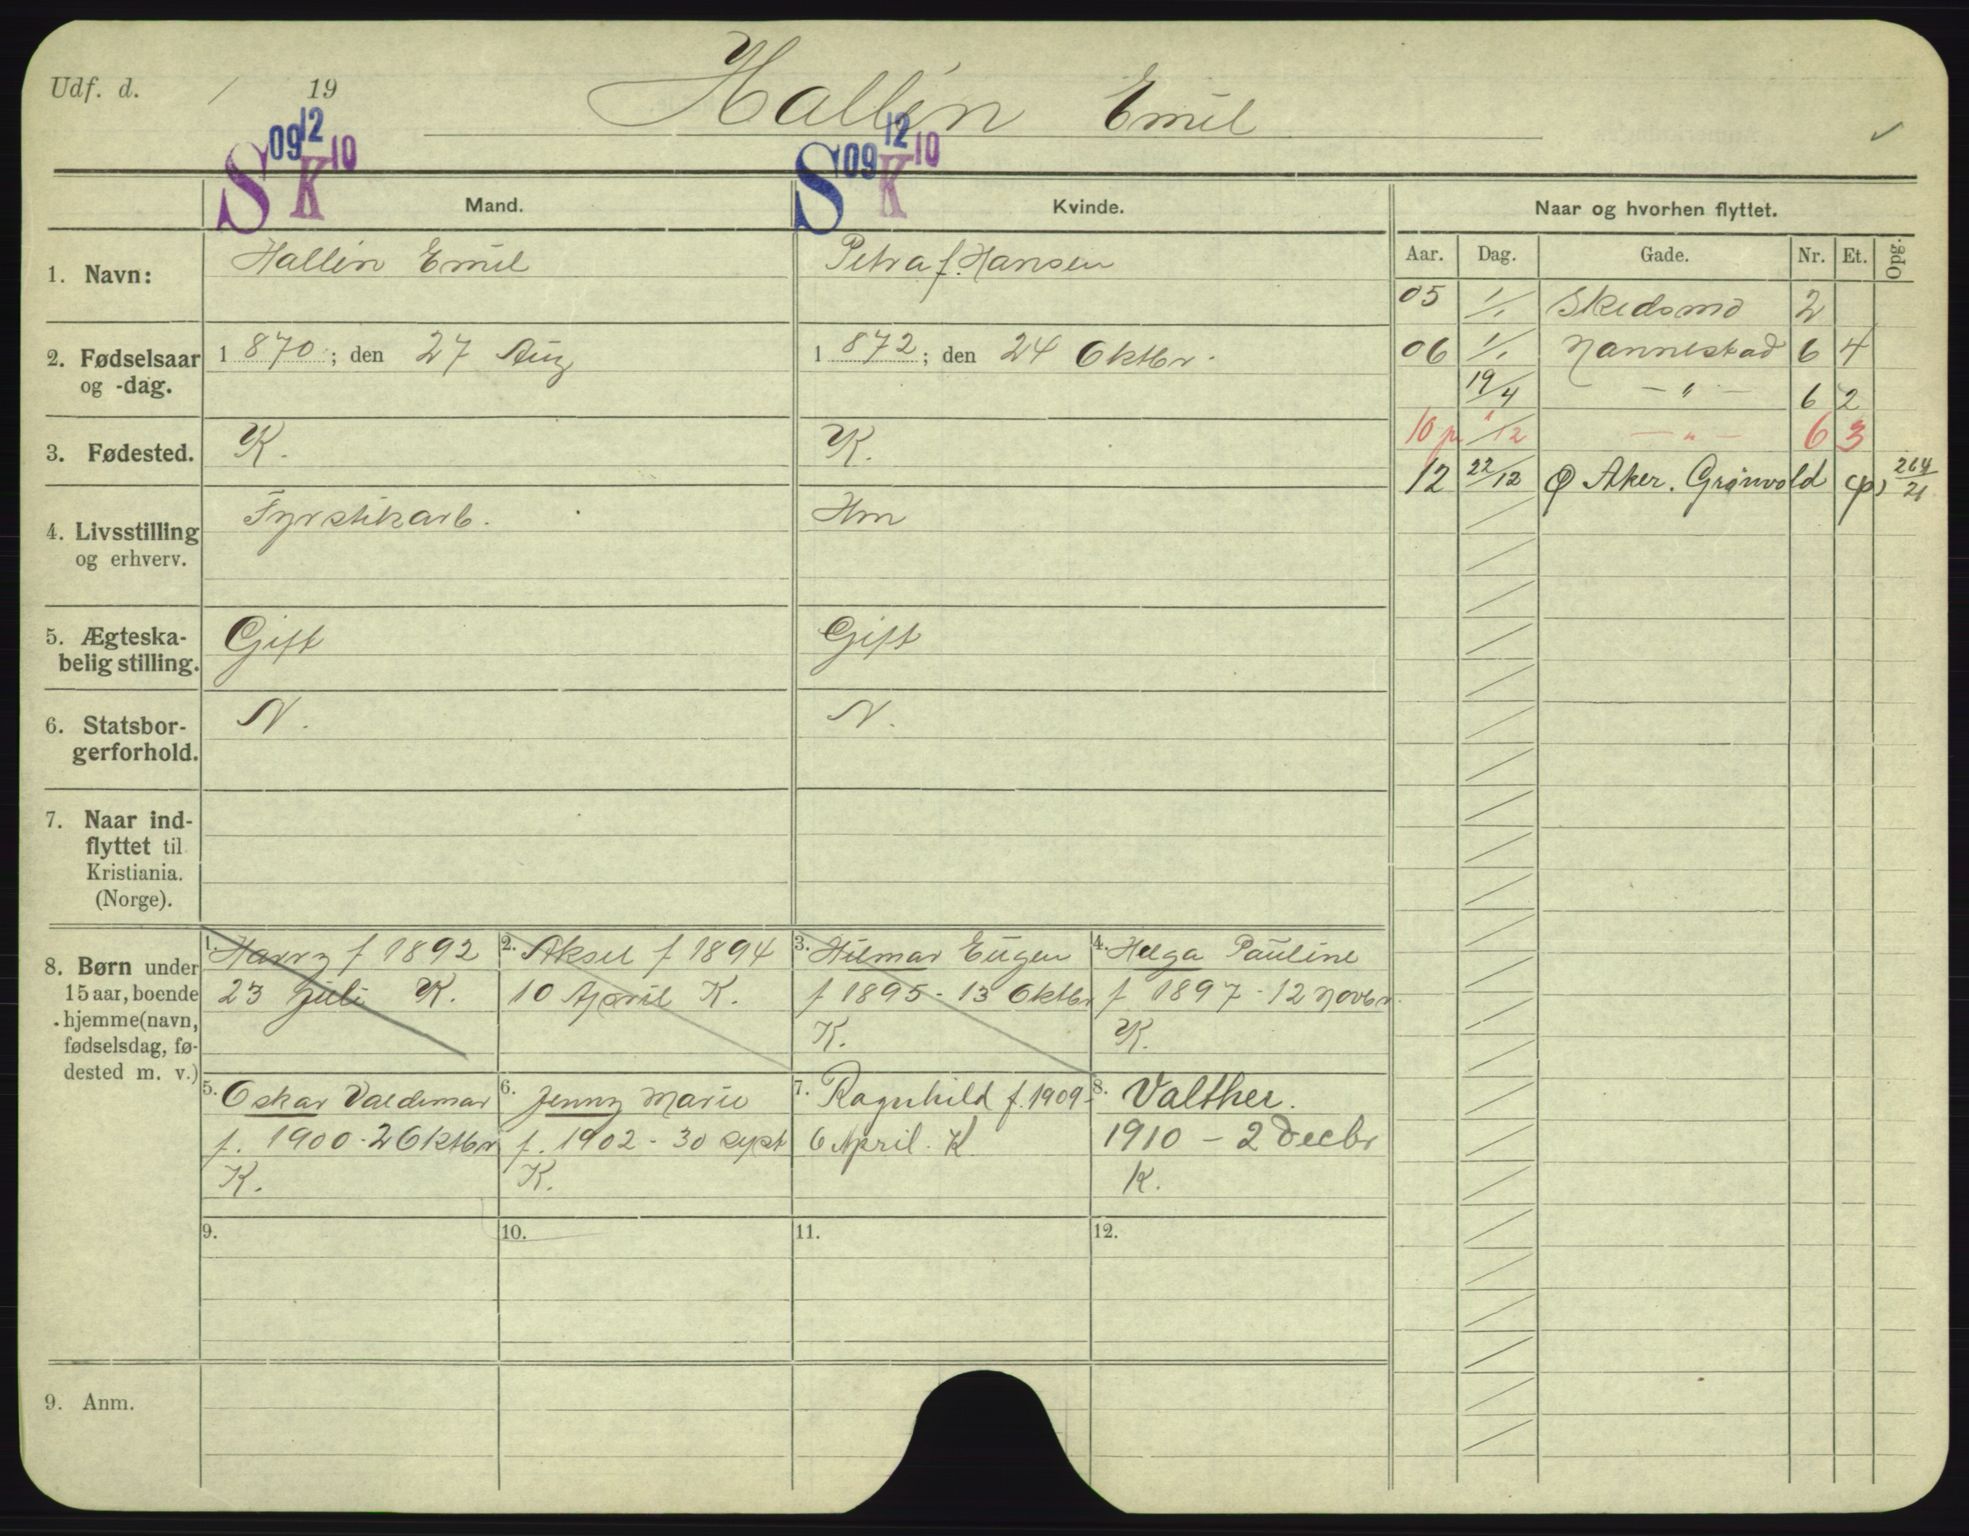 Udf. d. / 19
Hallén Emil
S 09 12 K 10
S 09 12 K 10
Mand.
Kvinde.
Naar og hvorhen flyttet.
Aar. Dag. Gade. Nr. Et. Opg.
1. Navn:
Hallén Emil
Petra f. Hansen
2. Fødselsaar
og -dag.
1 870 ; den 27 Aug
1 872 ; den 24 Oktbr.
3. Fødested.
K.
K.
4. Livsstilling
og erhverv.
Fyrstikarb.
Hm
5. Ægteska-
belig stilling.
Gift
Gift
6. Statsbor-
gerforhold.
N.
N.
7. Naar ind-
flyttet til
Kristiania.
(Norge).
05 1/1 Skedsmo 2
06 1/1 Nannestad 6 4
19/4 — " — 6 2
10 p 1/12 — " — 6 3
12 22/12 Ø Aker. Grønvold 264/21
8. Børn under
15 aar, boende
hjemme (navn,
fødselsdag, fø-
dested m. v.)
1. Harry f 1892
23 juli K.
2. Aksel f 1894
10 April K.
3. Hilmar Eugen
f 1895 - 13 Oktbr
K.
4. Helga Pauline
f 1897 - 12 Novbr.
K.
5. Oskar Valdemar
f. 1900 - 2 Oktbr
K.
6. Jenny Marie
f. 1902 - 30 Sept
K.
7. Ragnhild f. 1909-
6 April. K
8. Valther.
1910 - 2 Decbr
K.
9.
10.
11.
12.
9. Anm.